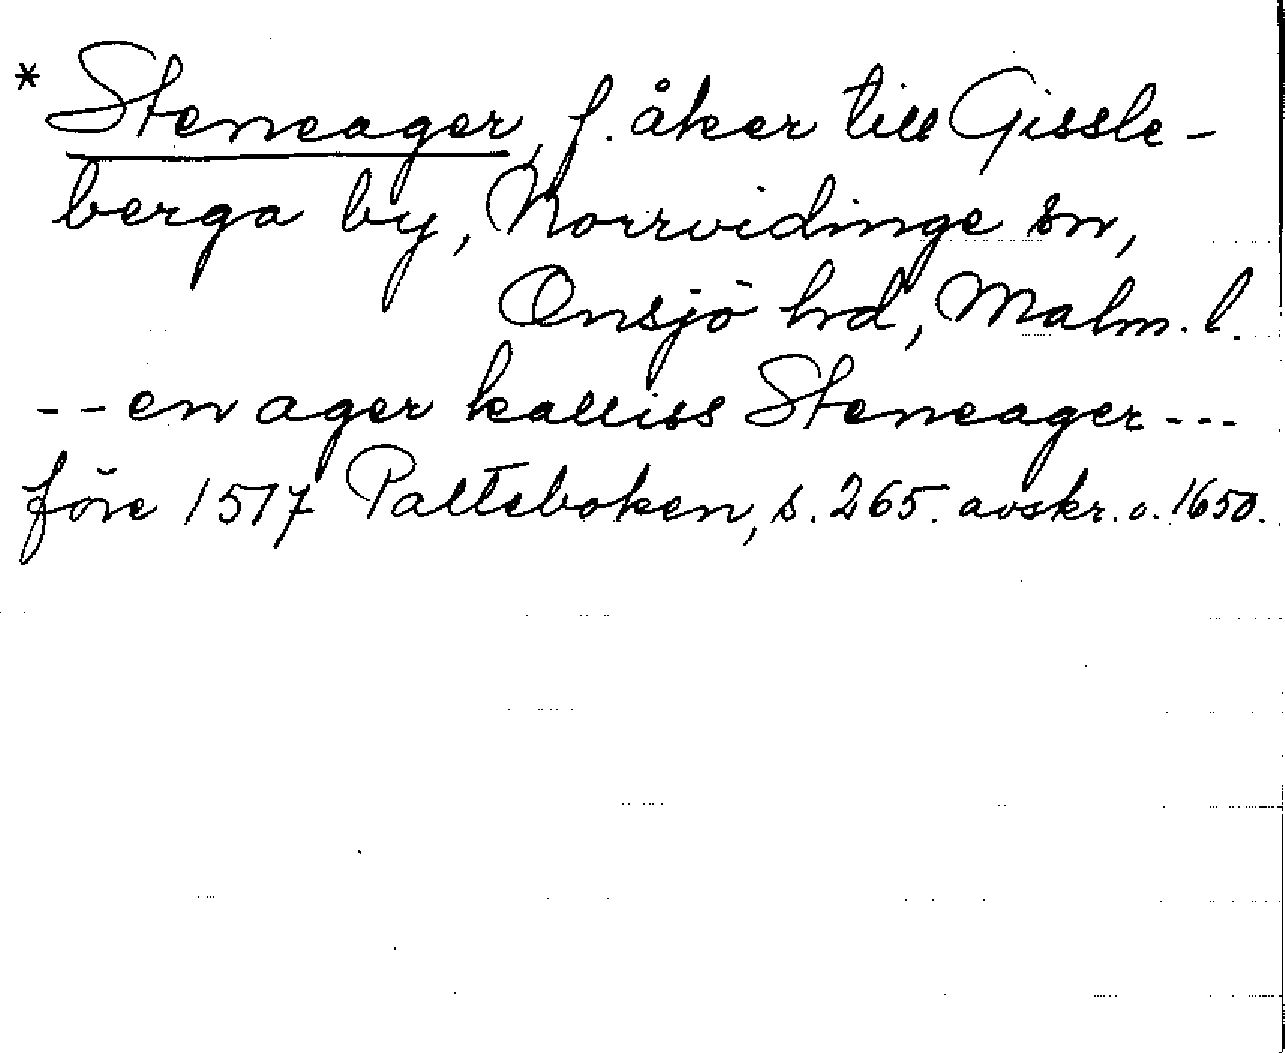 * Steneager, f. åker till Gissle-
berga by, Norrvidinge sn,
Onsjö hd, Malm. l.
-- en ager kalliss Steneager ---
före 1517 Palteboken, s. 265. avskr. o. 1650.